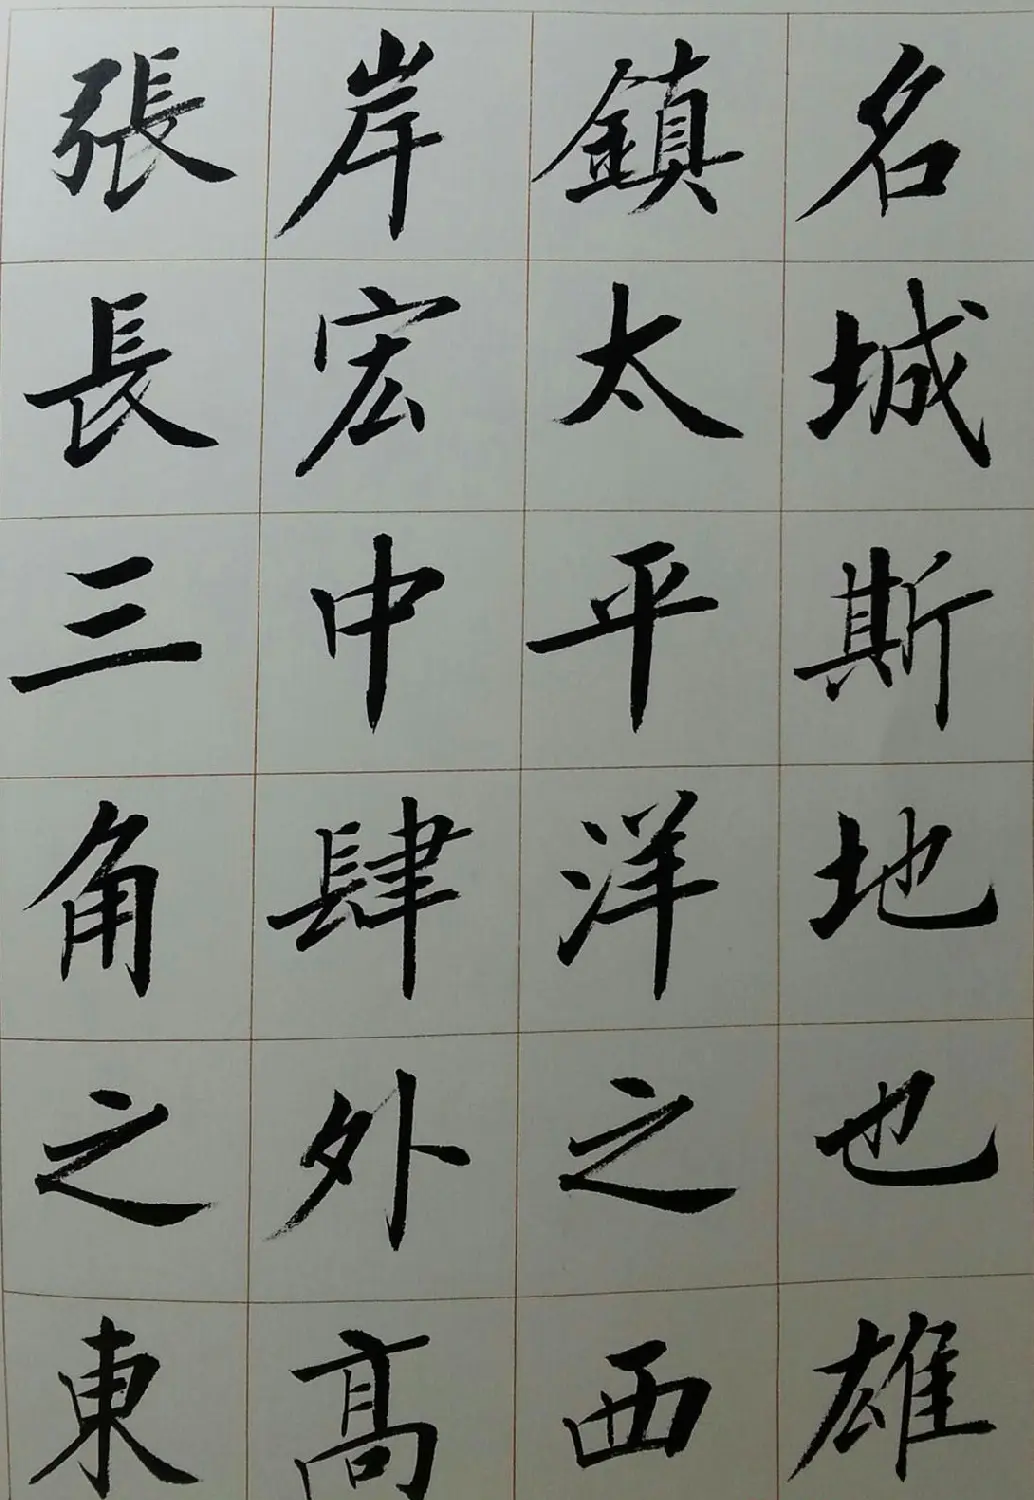 名城斯地也雄
鎮太平洋之西
岸宏中肆外高
張長三角之東